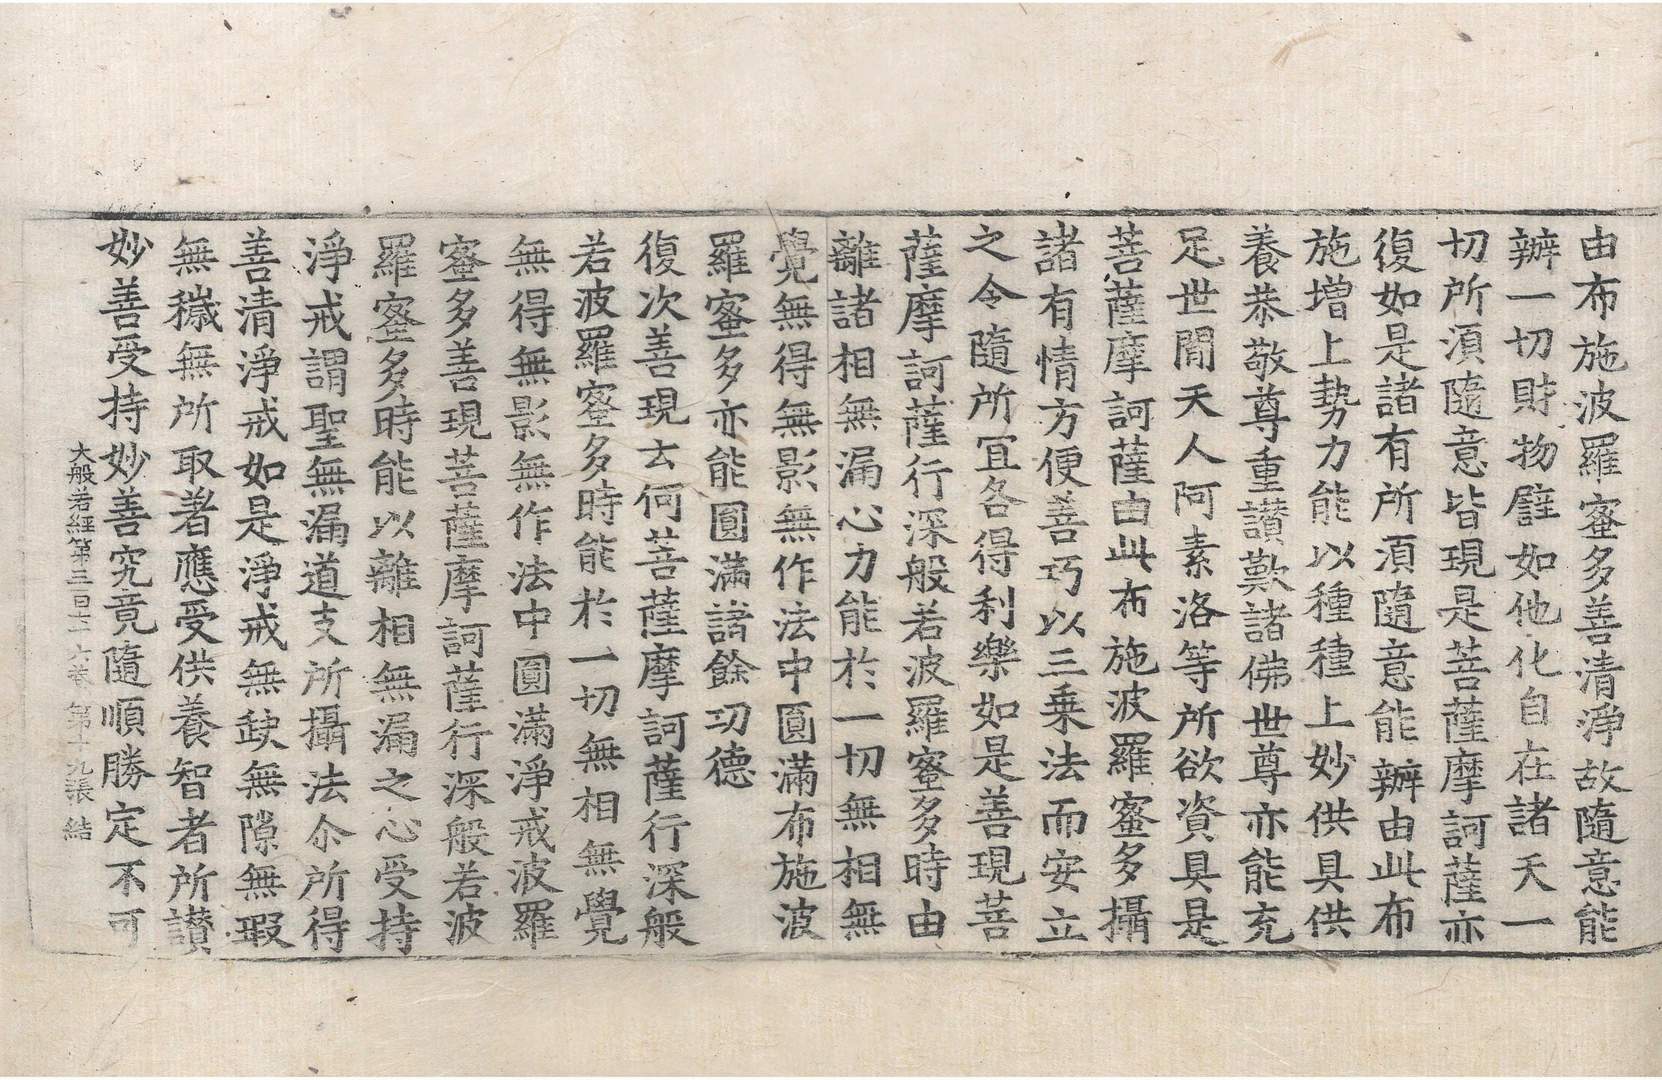 由布施波羅蜜多善清淨故隨意能
辦一切財物譬如他化自在諸天一
切所須隨意皆現是菩薩摩訶薩亦
復如是諸有所須隨意能辦由此布
施增上勢力能以種種上妙供具供
養恭敬尊重讃歎諸佛世尊亦能充
足世間天人阿素洛等所欲資具是
菩薩摩訶薩由此布施波羅蜜多攝
諸有情方便善巧以三乗法而安立
之令隨所冝各得利樂如是善現菩
薩摩訶薩行深般若波羅蜜多時由
離諸相無漏心力能於一切無相無
覺無得無影無作法中圓滿布施波
羅蜜多亦能圓滿諸餘功德
復次善現云何菩薩摩訶薩行深般
若波羅蜜多時能於一切無相無覺
無得無影無作法中圓滿淨戒波羅
蜜多善現菩薩摩訶薩行深般若波
羅蜜多時能以離相無漏之心受持
淨戒謂聖無漏道支所攝法尒所得
善清淨戒如是淨戒無缺無隙無瑕
無穢無所取著應受供養智者所讃
妙善受持妙善究竟隨順勝定不可
大般若經第三百七十六卷 第十九張 結